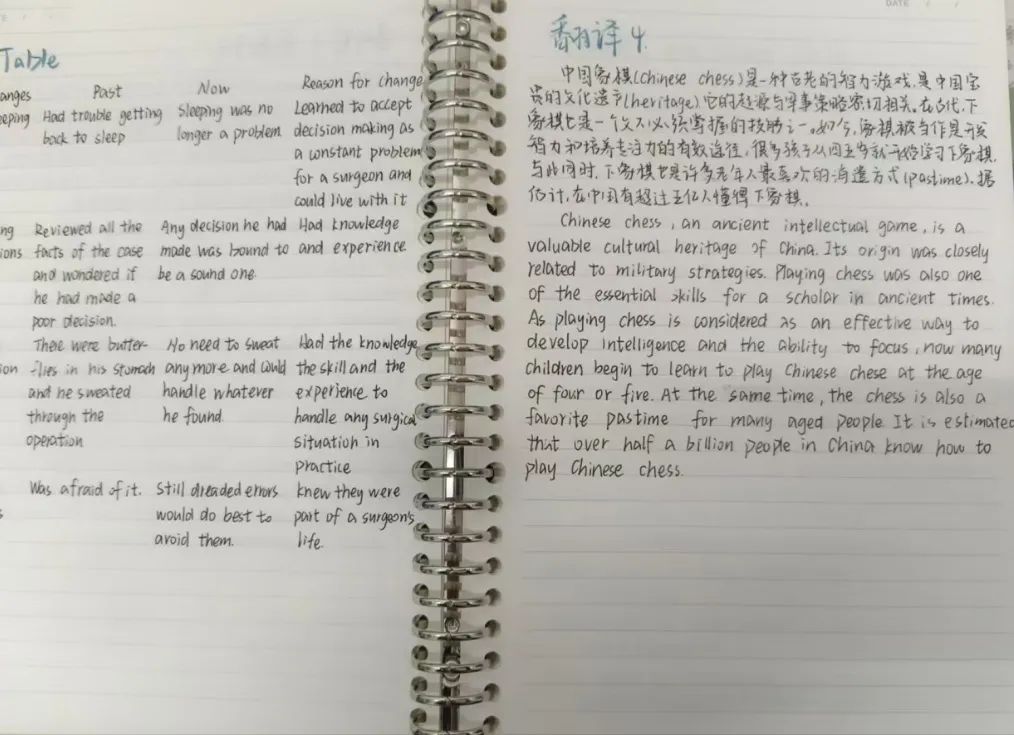 Table
anges Past Now Reason for change
eeping Had trouble getting Sleeping was no Learned to accept
back to sleep longer a problem decision making as
a constant problem
for a surgeon and
could live with it
ng Reviewed all the Any decision he had Had knowledge
ions facts of the case made was bound to and experience
and wondered if be a sound one.
he had made a
poor decision.
There were butter- No need to sweat Had the knowledge
ion flies in his stomach anymore and could the skill and the
and he sweated handle whatever experience to
through the he found. handle any surgical
operation situation in
practice
Was afraid of it. Still dreaded errors knew they were
s would do best to part of a surgeon's
avoid them. life.
DATE / /
翻译 4.
中国象棋(Chinese chess)是一种古老的智力游戏,是中国宝
贵的文化遗产(heritage)它的起源与军事策略密切相关。在古代,下
象棋也是一个文人必须掌握的技能之一。如今,象棋被当作是开发
智力和培养专注力的有效途径,很多孩子从四五岁就开始学习下象棋.
与此同时,下象棋也是许多老年人最喜欢的消遣方式(pastime).据
估计,在中国有超过五亿人懂得下象棋。
Chinese chess, an ancient intellectual game, is a
valuable cultural heritage of China. Its origin was closely
related to military strategies. Playing chess was also one
of the essential skills for a scholar in ancient times.
As playing chess is considered as an effective way to
develop intelligence and the ability to focus, now many
children begin to learn to play Chinese chese at the age
of four or five. At the same time, the chess is also a
favorite pastime for many aged people. It is estimated
that over half a billion people in China know how to
play Chinese chess.